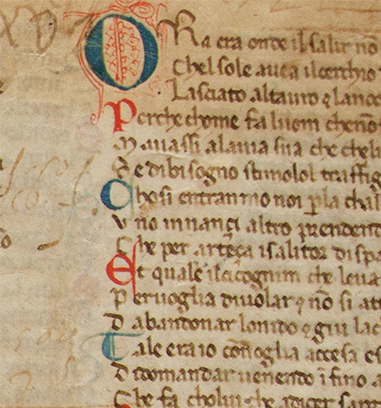 ORa era onde il salir nõ
Chel sole auea il cerchio
Lasciato altauro ⁊ lanoc
Perche chome fa luom chenõ
Ma uassi alauia sua che cheli
Se dibisogno stimolol traffig
Chosi entrammo noi ꝑla chal
Vno innançi altro prendend
Che per arteça isalitor dispa
Et quale ilcicognin che leua
Per uoglia diuolar ⁊ nõ si at
Dabandonar lonido ⁊ giu lac
Tale era io cõ uoglia accesa es
Didomandar uenendo ĩ fino a
Che fa cholui che adicer sarg